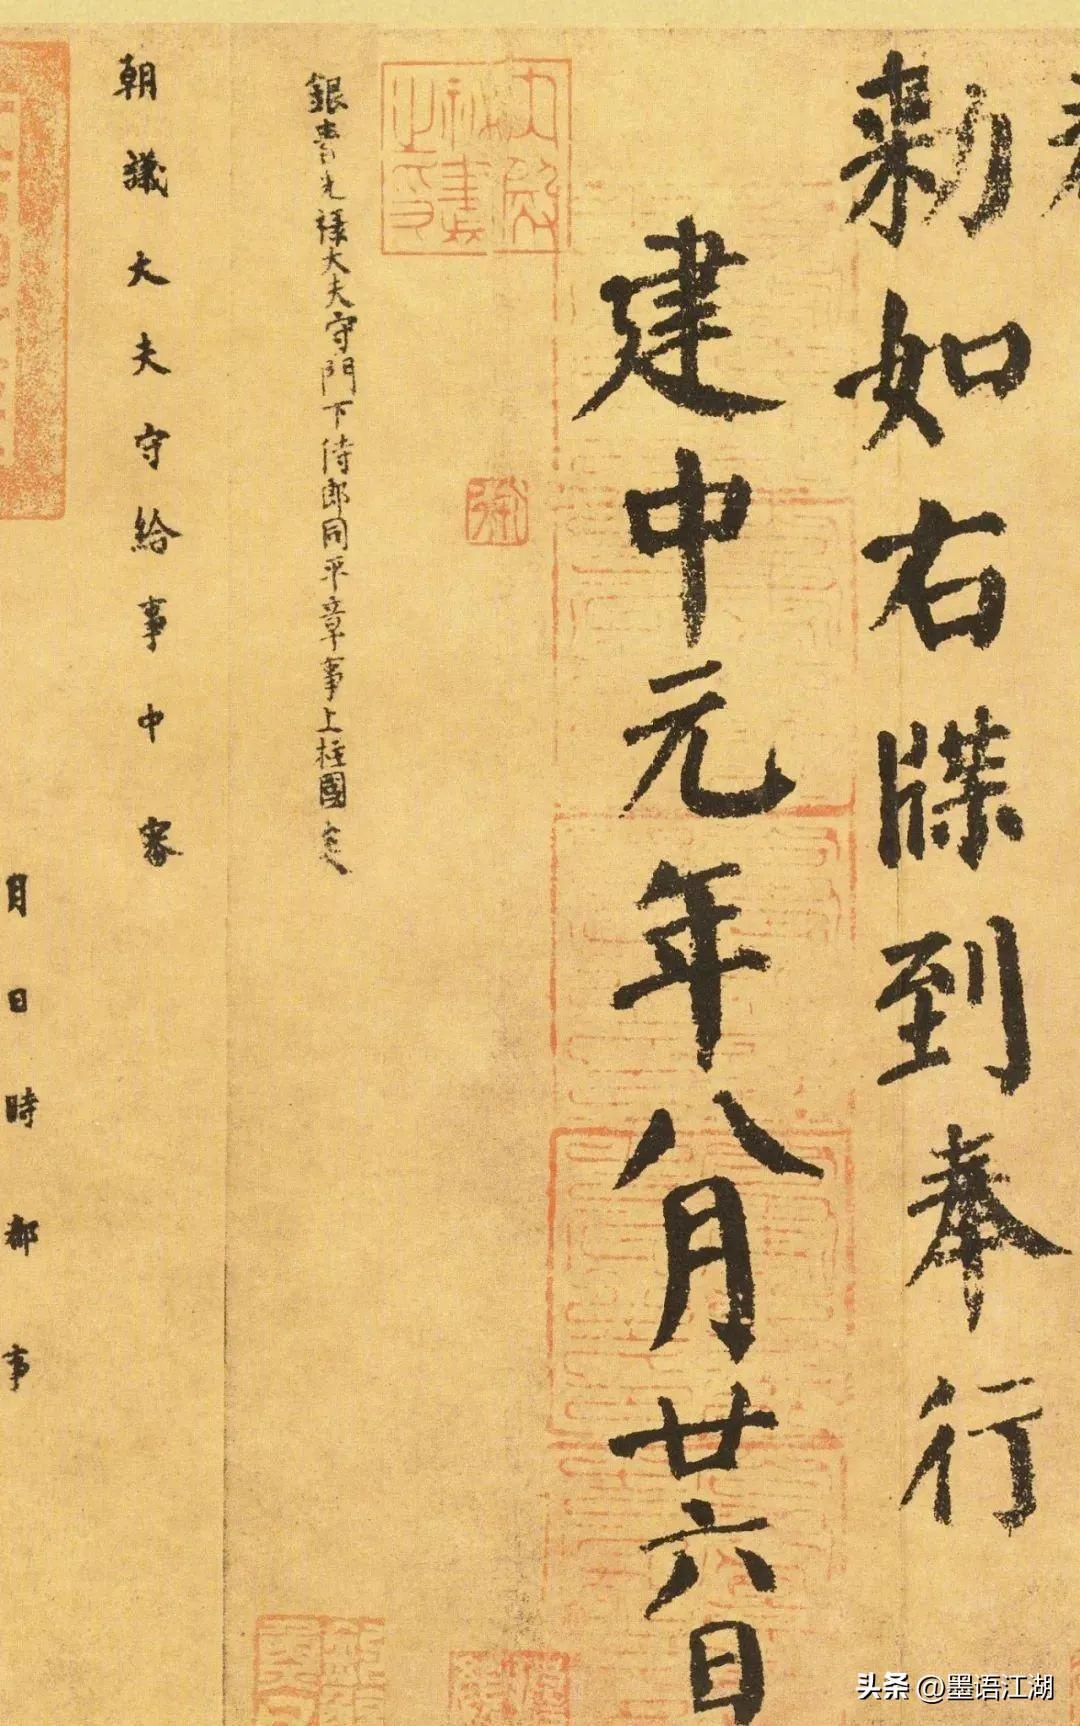 勑如右牒到奉行
建中元年八月廿六日
銀青光禄大夫守門下侍郎同平章事上柱國炎
朝議大夫守給事中審
月日時都事
头条 @墨语江湖